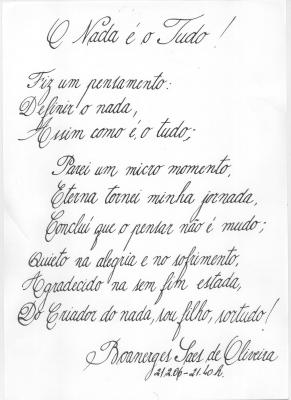 O Nada é o Tudo!
Fiz um pensamento:
Definir o nada,
Assim como é, o tudo;
Parei um micro momento,
Eterna tornei minha jornada,
Concluí que o pensar não é mudo;
Quieto na alegria e no sofrimento,
Agradecido na sem fim estada,
Do Criador do nada, sou filho, sortudo!
Boanerges Saes de Oliveira
21.2.06 - 21.40 h.